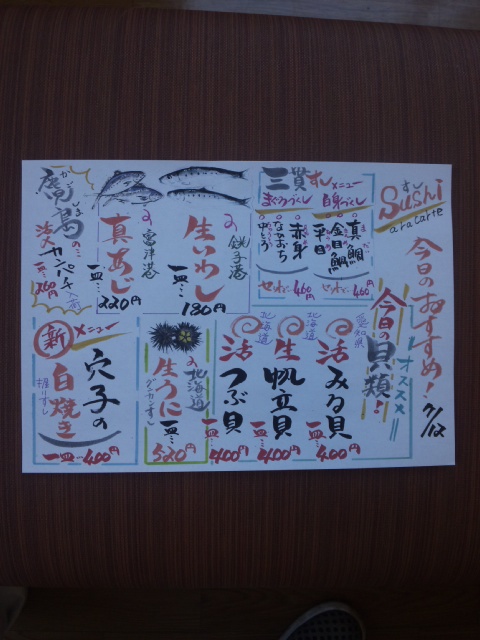 Sushi
すし
a la carte
今日のおすすめ!
7/12
三貫すしメニュー
まぐろづくし
赤身
中とろ
セットで460円
白身づくし
真鯛
金目鯛
平目
セットで460円
銚子港の
生いわし
一皿…
180円
富津港の
真あじ
一皿…
220円
かごしまの…
活〆カンパチ入荷
一皿…260円
今日の貝類♪
オススメ
愛知県
活みる貝
一皿…
400円
北海道
生帆立貝
一皿…
400円
北海道
活つぶ貝
一皿…
400円
北海道の
生うに
グンカンすし
一皿…
520円
新メニュー
穴子の
白焼き
握りすし
一皿…400円